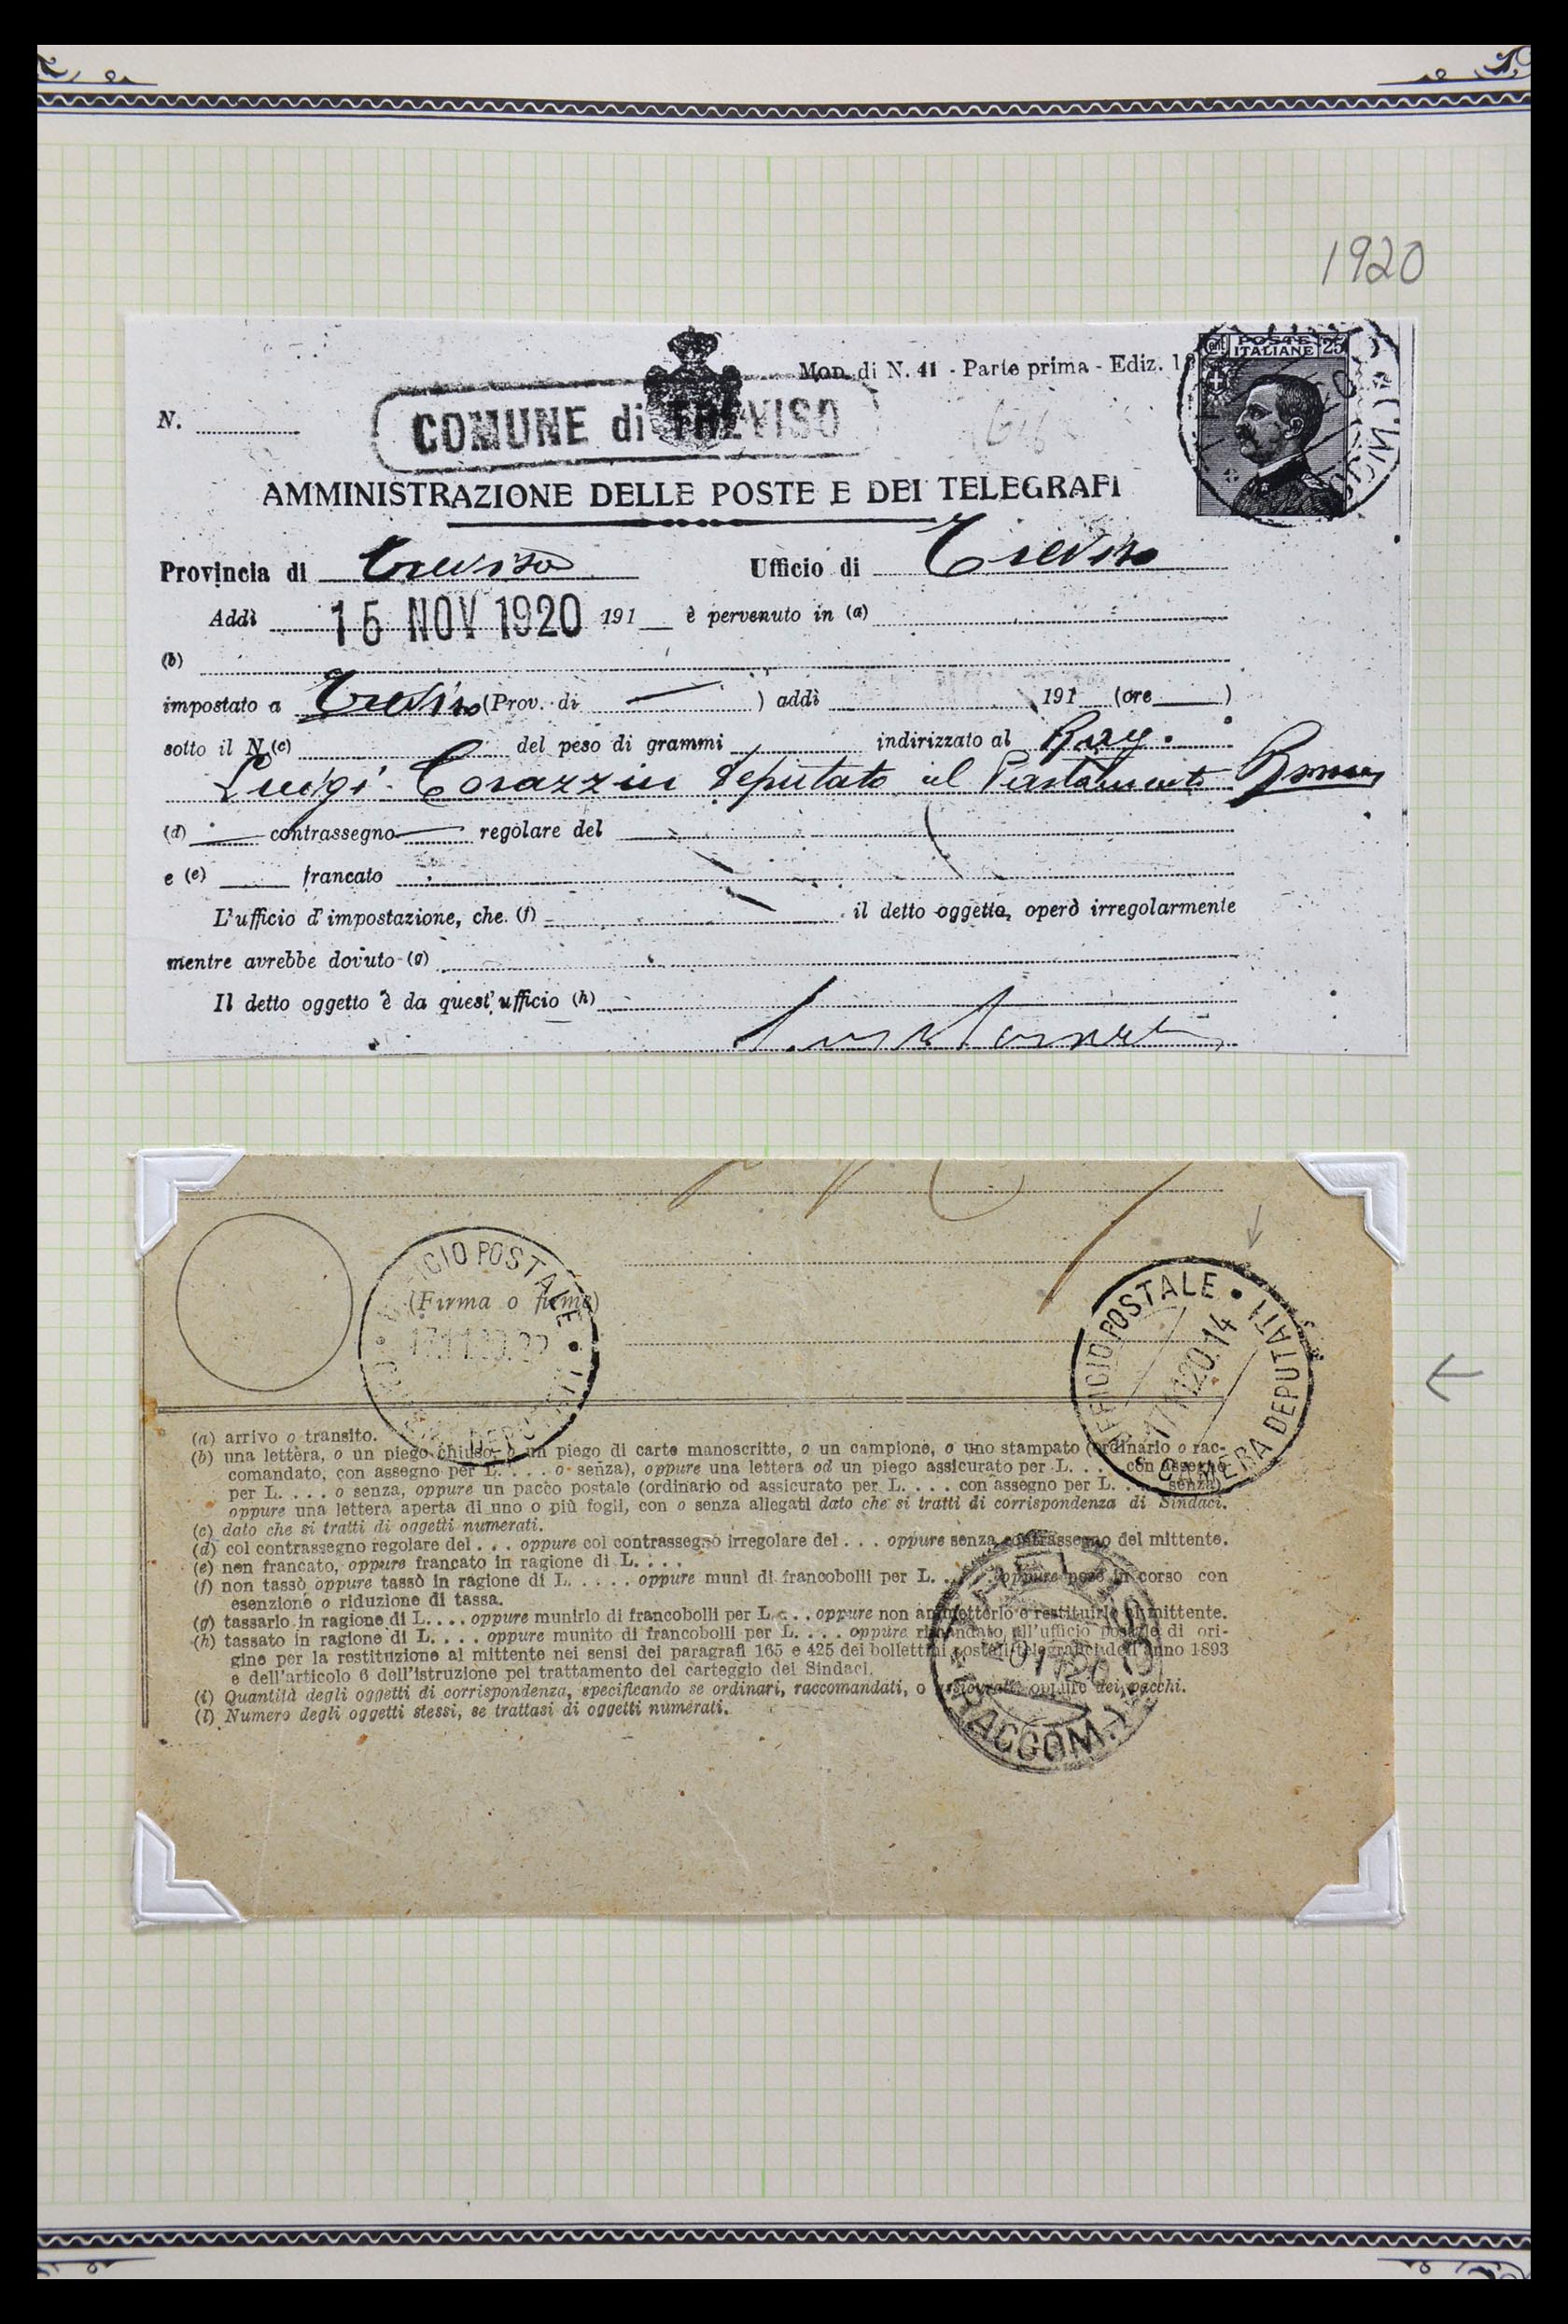 1920
Mod. di N. 41 - Parte prima - Ediz. 19
Cent POSTE ITALIANE 25
N.
COMUNE di TREVISO
AMMINISTRAZIONE DELLE POSTE E DEI TELEGRAFI
Provincia di Treviso Ufficio di Treviso
Addì 15 NOV 1920 191 è pervenuto in (a)
(b)
impostato a Treviso (Prov. di ) addì 191 (ore )
sotto il N. (c) del peso di grammi indirizzato al Rag.
Luigi Corazzin Deputato al Parlamento Roma
(d) contrassegno regolare del
e (e) francato
L'ufficio d'impostazione, che (f) il detto oggetto, operò irregolarmente
mentre avrebbe dovuto (g)
Il detto oggetto è da quest'ufficio (h)
UFFICIO POSTALE
(Firma o firme)
UFFICIO POSTALE • CAMERA DEPUTATI
17.11.20.14
(a) arrivo o transito.
(b) una lettera, o un piego chiuso, o un piego di carte manoscritte, o un campione, o uno stampato (ordinario o rac-
comandato, con assegno per L. . . . o senza), oppure una lettera od un piego assicurato per L. . . . con assegno
per L. . . . o senza, oppure un pacco postale (ordinario od assicurato per L. . . . con assegno per L. . . . senza)
oppure una lettera aperta di uno o più fogli, con o senza allegati dato che si tratti di corrispondenza di Sindaci.
(c) dato che si tratti di oggetti numerati.
(d) col contrassegno regolare del . . . oppure col contrassegno irregolare del . . . oppure senza contrassegno del mittente.
(e) non francato, oppure francato in ragione di L. . . .
(f) non tassò oppure tassò in ragione di L. . . . . oppure munì di francobolli per L. . . . oppure pose in corso con
esenzione o riduzione di tassa.
(g) tassarlo in ragione di L. . . . oppure munirlo di francobolli per L. . . . oppure non ammetterlo e restituirlo al mittente.
(h) tassato in ragione di L. . . . oppure munito di francobolli per L. . . . oppure rimandato all'ufficio postale di ori-
gine per la restituzione al mittente nei sensi dei paragrafi 165 e 425 dei bollettini postali telegrafici dell'anno 1893
e dell'articolo 6 dell'istruzione pel trattamento del carteggio dei Sindaci.
(i) Quantità degli oggetti di corrispondenza, specificando se ordinari, raccomandati, o assicurati oppure dei pacchi.
(l) Numero degli oggetti stessi, se trattasi di oggetti numerati.
RACCOM.